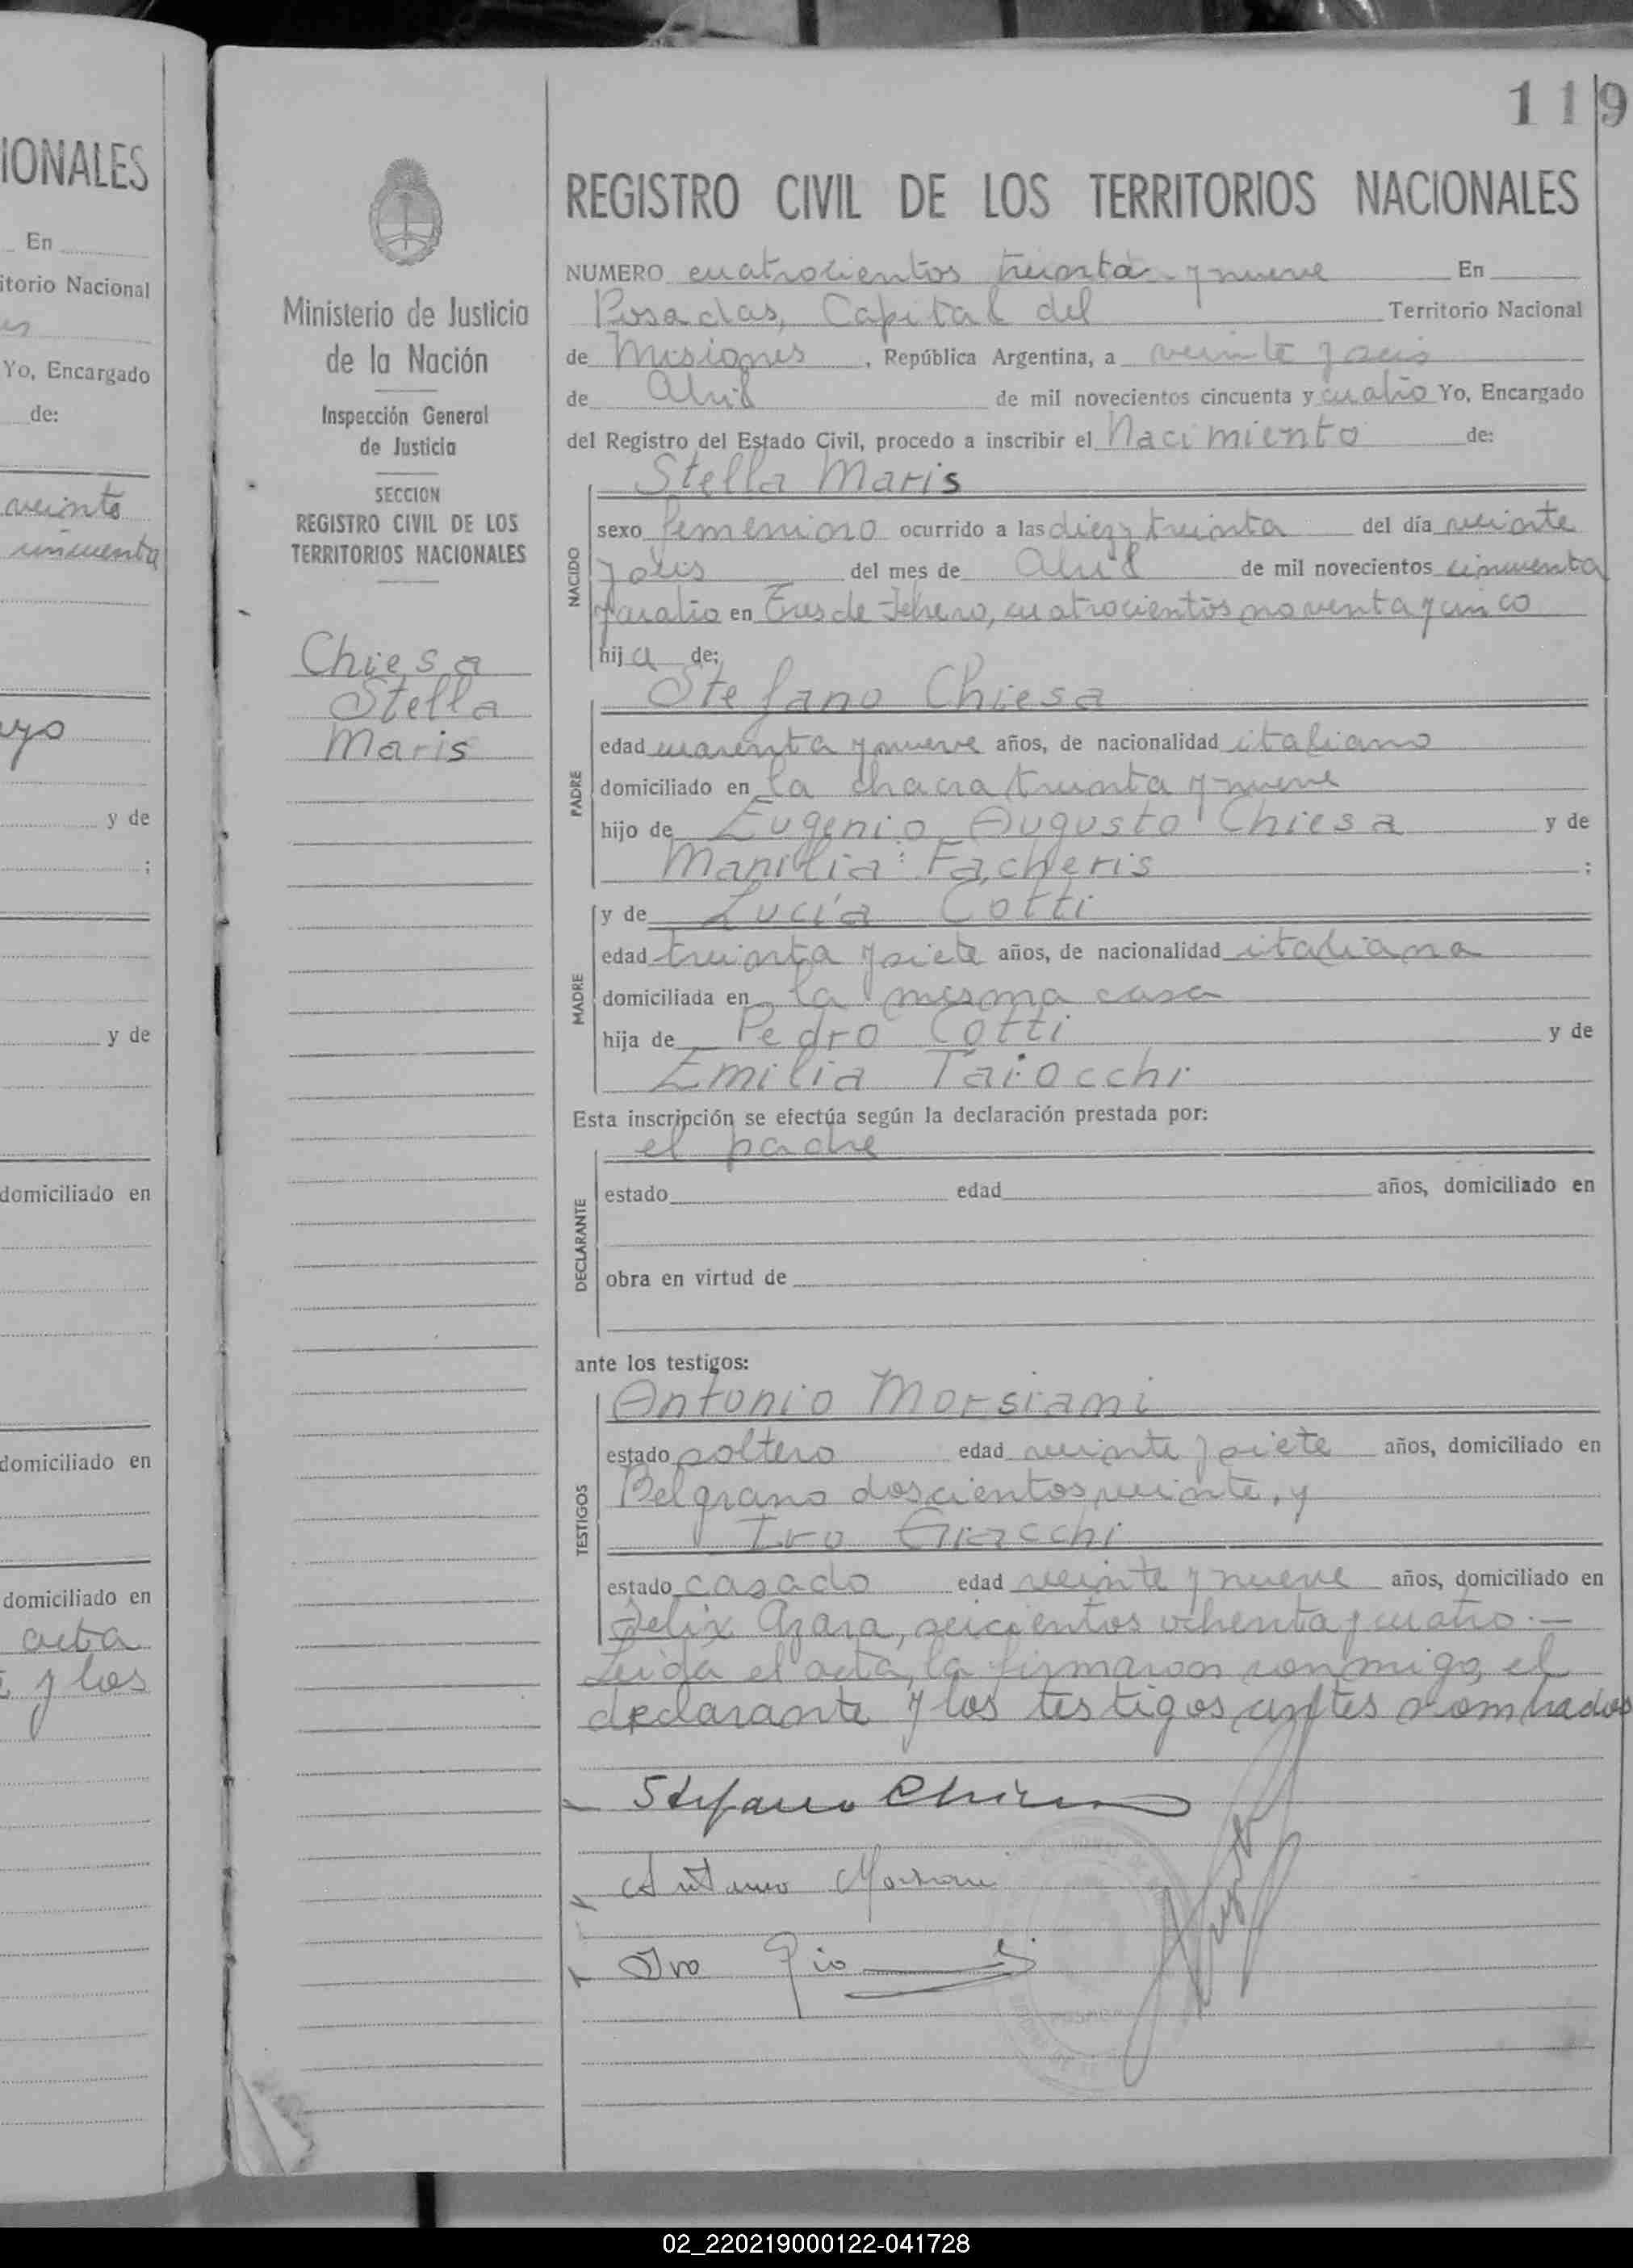 IONALES
En
itorio Nacional
Yo, Encargado
de:
veinte
cincuenta
y de
;
y de
domiciliado en
domiciliado en
domiciliado en
acta
y los
119
Ministerio de Justicia
de la Nación
Inspección General
de Justicia
SECCION
REGISTRO CIVIL DE LOS
TERRITORIOS NACIONALES
Chiesa
Stella
Maris
REGISTRO CIVIL DE LOS TERRITORIOS NACIONALES
NUMERO cuatrocientos treinta y nueve En
Posadas, Capital del Territorio Nacional
de Misiones, República Argentina, a veinte y seis
de Abril de mil novecientos cincuenta y cuatro Yo, Encargado
del Registro del Estado Civil, procedo a inscribir el Nacimiento de:
Stella Maris
NACIDO
sexo femenino ocurrido a las diez y treinta del día veinte
y seis del mes de Abril de mil novecientos cincuenta
y cuatro en Tres de Febrero, cuatrocientos noventa y cinco
hija de:
Stefano Chiesa
PADRE
edad cuarenta y nueve años, de nacionalidad italiano
domiciliado en la chacra treinta y nueve
hijo de Eugenio Augusto Chiesa y de
Manilia Facheris ;
MADRE
y de Lucía Cotti
edad treinta y siete años, de nacionalidad italiana
domiciliada en la misma casa
hija de Pedro Cotti y de
Emilia Taiocchi
Esta inscripción se efectúa según la declaración prestada por:
el padre
DECLARANTE
estado edad años, domiciliado en
obra en virtud de
ante los testigos:
TESTIGOS
Antonio Morsiani
estado soltero edad veinte y siete años, domiciliado en
Belgrano doscientos veinte, y
Ivo Giacchi
estado casado edad veinte y nueve años, domiciliado en
Felix Azara, seicientos ochenta y cuatro.—
Leida el acta, la firmaron conmigo, el
declarante y los testigos antes nombrados
Stefano Chiesa
Antonio Morsiani
Ivo
02_220219000122-041728